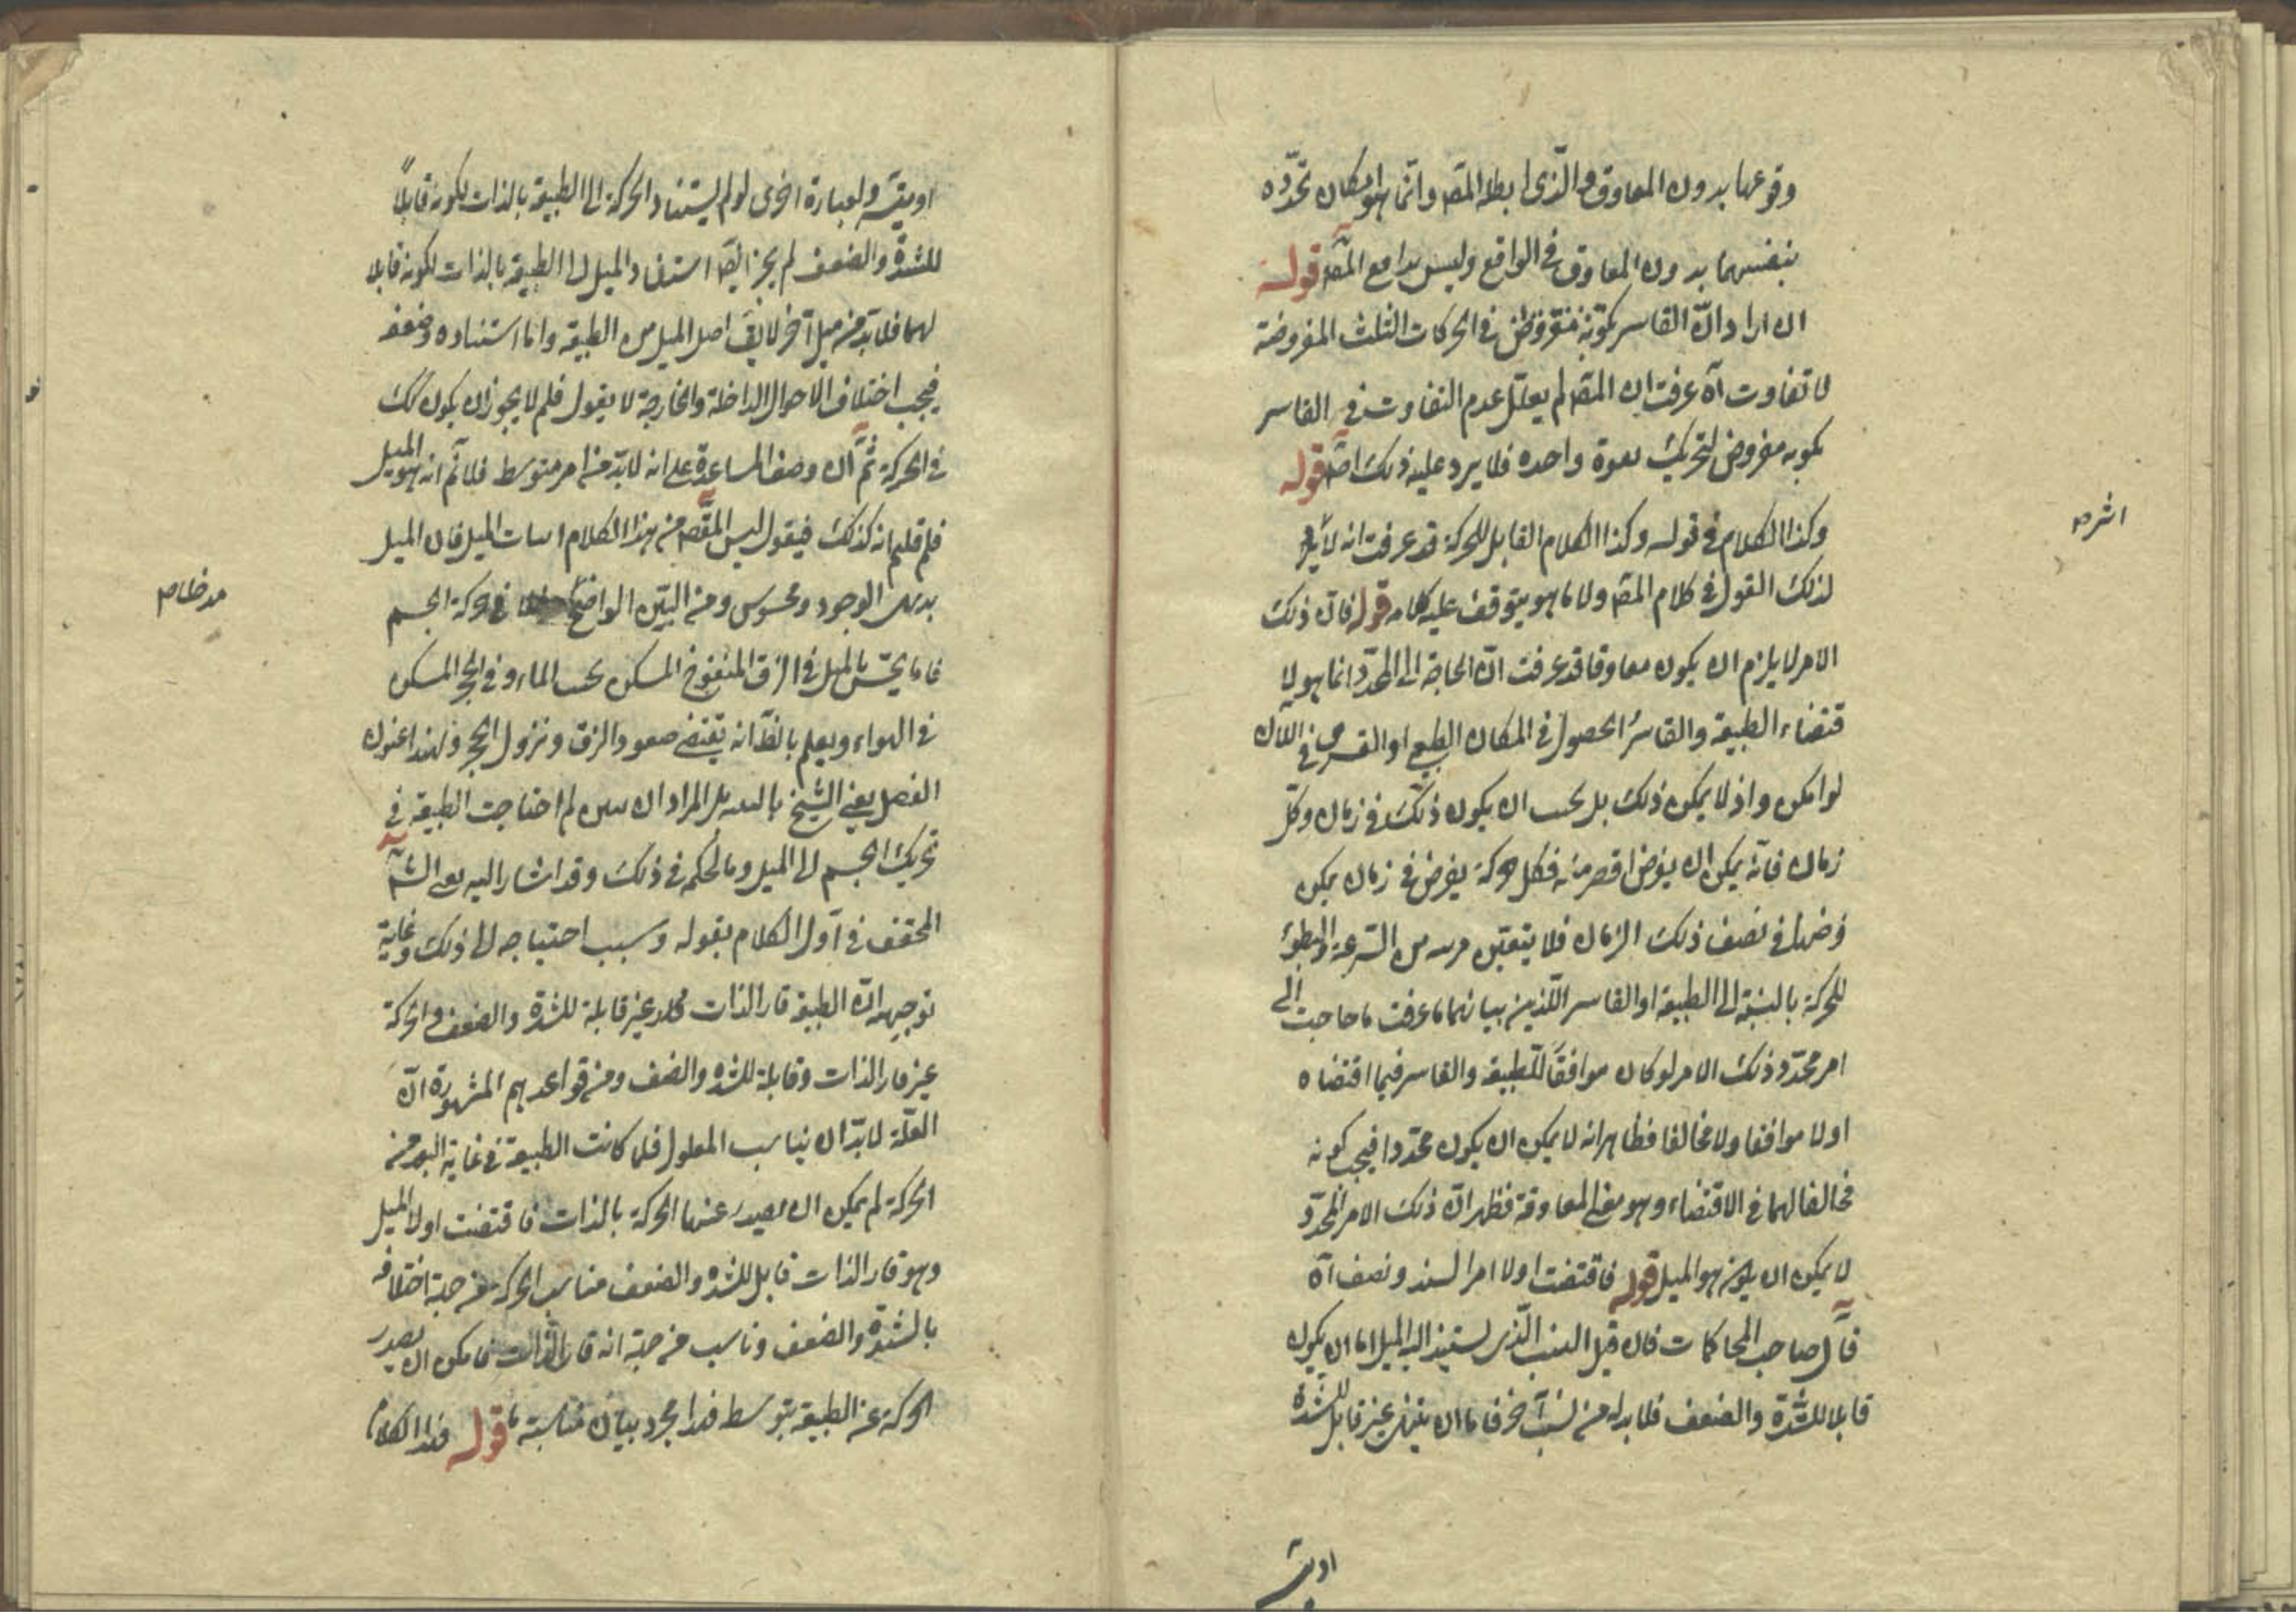 وقوعها بدون المعاوق والذى ابطله المصه وانما هو امكان تحدده
بنفسهما بدون المعاوق فى الواقع وليس بدافع المصه قوله
ان اراد ان القاسر بقوته مفروض فى الحركات الثلث المفروضة
لا تفاوت آه عرفت ان المصه لم يعلل عدم التفاوت فى القاسر
بكونه مفروض لتحريك بقوة واحده فلا يرد عليه ذلك اصه قوله
وكذا الكلام فى قوله وكذا الكلام القابل للحركة قد عرفت انه لا
لذلك القول فى كلام المصه ولا ما هو يتوقف عليه كلامه قوله فان ذلك
الامر لا يلزم ان يكون معاوقا قد عرفت ان الحاجة الى المحدد انما هو لا
قتضاء الطبيعة والقاسر الحصول فى المكان الطبيعى او القسرى فى الآن
لو امكن واذ لا يمكن ذلك بل يجب ان يكون ذلك فى زمان وكل
زمان فانه يمكن ان يفرض اقصر منه فكل حركة يفرض فى زمان يمكن
فرضها فى نصف ذلك الزمان فلا يتعين مرتبه من السرعة والبطوء
للحركة بالنسبة الى الطبيعة او القاسر اللذين بيانهما ما عرفت فاحاجت الى
امر محدد وذلك الامر لو كان موافقا للطبيعة والقاسر فيما اقتضاه
او لا موافقا ولا مخالفا فظاهر انه لا يمكن ان يكون محددا فيجب كونه
مخالفا لهما فى الاقتضاء وهو معنى المعاوقة فظهر ان ذلك الامر المحدد
لا يمكن ان يكون هو الميل قوله فاقتضت اولا امرا يشتد ويضعف آه
قال صاحب المحاكمات فان قيل السبب الذى يستند اليه الميل اما ان يكون
قابلا للشدة والضعف فلا بد له من سبب آخر فاما ان ينتهى غير قابل للشدة
اويتسه
اشرحه
اويتسه ولعبارة اخرى لو لم يستند الحركة الى الطبيعة بالذات لكونه قابلاً
للشدة والضعف لم يجز ايضه استناد الميل الى الطبيعة بالذات لكونه قابلا
لهما فلا بد من ميل آخر لا يق اصل الميل من الطبيعة واما استناده وضعفه
فيجب اختلاف الاحوال الداخلة والخارجة لا يقول فلم لا يجوز ان يكون كك
فى الحركة ثم ان وصف المساعدة على انه لا بد من امر متوسط فلا ثم انه هو الميل
فلم قلتم انه كذلك فيقول ليس المقصه من هذا الكلام اثبات الميل فان الميل
بديهى الوجود ومحسوس ومن البين الواضح فى حركة الجسم
فاما يحس بالميل فى الزق المنفوخ المسكن تحت الماء وفى الحجر المسكن
فى الهواء ويعلم بالظ انه يقتضى صعود الزق ونزول الحجر ولهذا عنون
الفصل يعنى الشيخ بالتنبيه بل المراد ان يبين لم احتاجت الطبيعة فى
تحريك الجسم الى الميل وما الحكم فى ذلك وقد اشار اليه يعنى الشه
المحقق فى اول الكلام بقوله وسبب احتياجه الى ذلك وغاية
توجيهه ان الطبيعة قار الذات غير قابلة للشدة والضعف والحركة
غير قار الذات وقابلة للشده والضعف ومن قواعدهم المشهورة ان
العلة لا بد ان يناسب المعلول فلما كانت الطبيعة فى غاية البعد من
الحركة لم يمكن ان يصدر عنها الحركة بالذات فاقتضت اولا الميل
وهو قار الذات قابل للشده والضعف مناسب الحركة من جهة اختلافه
بالشدة والضعف وناسب من جهة انه قار الذات فامكن ان يصدر
الحركة عن الطبيعة بتوسط هذا مجرد بيان مناسبته ما قوله هذا الكلام